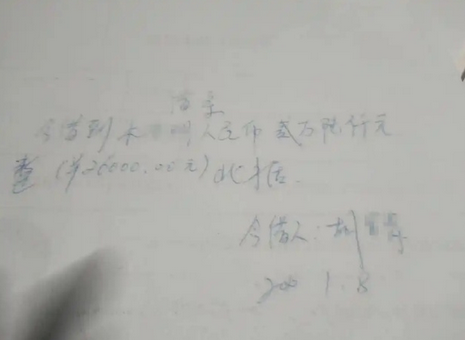 借条
今借到木 人民币贰万陆仟元
整(¥26000.00元)此据
今借人:胡
200 1.8